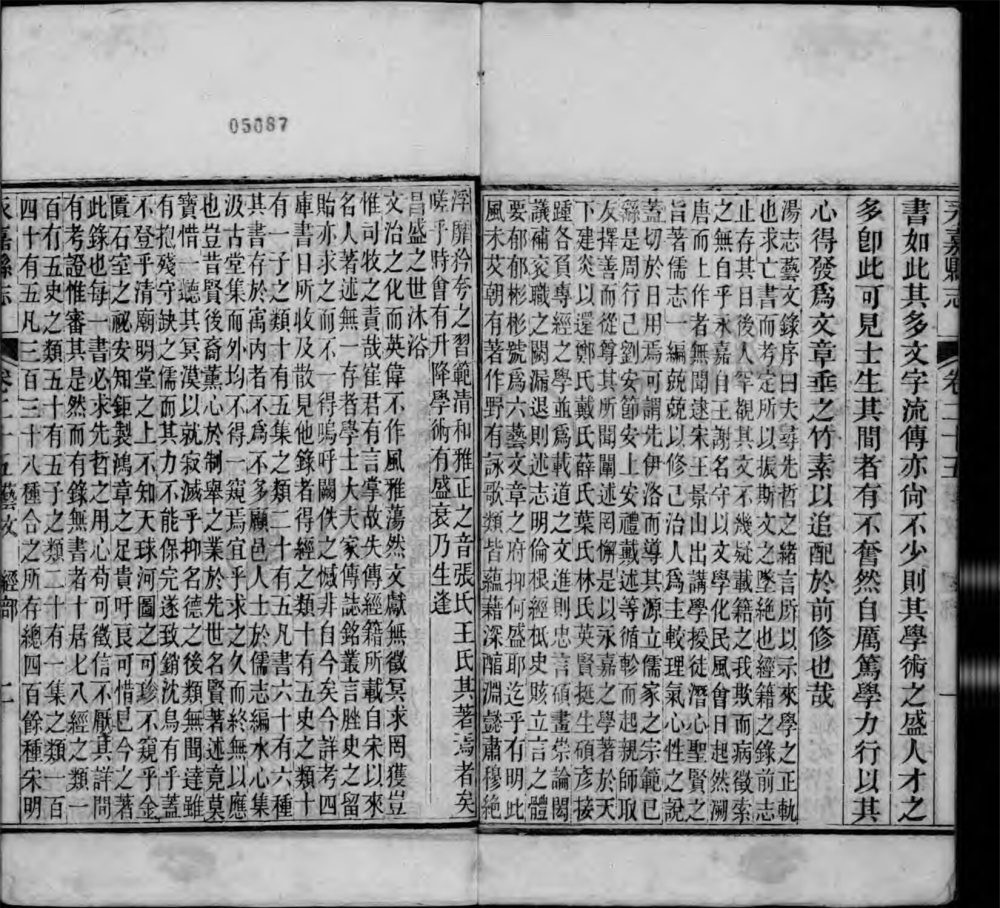 05087
永嘉縣志　卷二十五　一
書如此其多文字流傳亦尙不少則其學術之盛人才之
多卽此可見士生其間者有不奮然自厲篤學力行以其
心得發爲文章垂之竹素以追配於前修也哉
湯志藝文錄序曰夫尋先哲之緒言所以示來學之正軌
也求亡書而考定所以振斯文之墜絕也經籍之錄前志
止存其目後人罕覩其文不幾疑載籍之我欺而病徵索
之無自乎永嘉自王謝名守以文學化民風會日起然溯
唐而上作者無聞逮宋王景山出講學授徒潛心聖賢之
旨著儒志一編兢兢以修己治人爲主較理氣心性之說
蓋切於日用焉可謂先伊洛而導其源立儒家之宗範已
繇是周行己劉安節安上安禮戴述等循軫而起親師取
友擇善而從尊其所聞闡述罔懈是以永嘉之學著於天
下建炎以還鄭氏戴氏薛氏葉氏林氏英賢挺生碩彥接
踵各負專經之學並爲載道之文進則忠言碩畫崇論閎
議補袞職之闕漏退則述志明倫根經柢史賅立言之體
要郁郁彬彬號爲六藝文章之府抑何盛耶迄乎有明此
風未艾朝有著作野有詠歌類皆蘊藉深醞淵懿肅穆絕
浮靡矜夸之習範清和雅正之音張氏王氏其著焉者矣
嗟乎時會有升降學術有盛衰乃生逢
昌盛之世沐浴
文治之化而英偉不作風雅蕩然文獻無徵冥求罔獲豈
惟司牧之責哉崔君有言掌故失傳經籍所載自宋以來
名人著述無一存者學士大夫家傳誌銘叢言脞史之留
貽亦求之而不一得嗚呼闕佚之憾非自今矣今詳考四
庫書目所收及散見他錄者得經之類十有五史之類十
有一子之類十有五集之類二十有五凡書六十有六種
其書存於寓內者不爲不多顧邑人士於儒志編水心集
汲古堂集而外均不得一窺焉宜乎求之久而終無以應
也豈昔賢後裔薰心於制舉之業於先世名賢著述竟莫
寶惜一聽其冥漠以就寂滅乎抑名德之後類無聞達雖
有抱殘守缺之儒而其力不能保完遂致銷沈烏有乎蓋
不登乎清廟明堂之上不知天球河圖之可珍不窺乎金
匱石室之祕安知鉅製鴻章之足貴吁良可惜已今之著
此錄也每一書必求先哲之用心苟可徵信不厭其詳間
有考證惟審其是然而有錄無書者十居七八經之類一
百有五史之類五十有五子之類二十有一集之類一百
四十有五凡三百三十八種合之所存總四百餘種宋明
永嘉縣志　卷二十五　藝文　經部　二